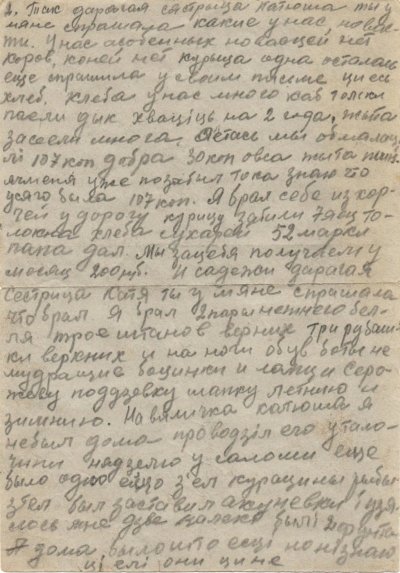 2. Так дарагая сястрица катюша ты у
мяне спрашала какие у нас новас-
ти. У нас асобенных новасцей нет
коров, коней нет курыца одна осталась
еще спрашила у своим письме ци есь
хлеб. хлеба у нас много каб толки
паели дык хваціць на 2 года, жыта
засеели много. Летась мы обмалаці-
лі 107 коп добра 30 коп овса жыта
ячменя уже позабыл только знаю что
усяго была 107 коп. Я врал себе из хар-
чей у дорогу курицу забили 7 яиц то-
локна хлеба сухарей 52 марки
папа дал. Мы за цебя получаем у
месяц 200 руб. И садежи дарагая
Сестрица Катя ты у мяне спрашала
что врал. Я врал 2 пары нежнего бел-
ля трое штанов верних три рубаш-
ки верхних и на ноги обув боты не
мудращие боцинки и лапци серо-
жесу поддзевку шапку летнию и
зимнию. На вяличка катюша я
небыл дома проводзіл его у
нядзелю у салоши еще
было одно яйцо з'ел курацины рыбы
з'ел
лось мне две далеко былі
дома было што есці но незнаю
ці елі они ци не